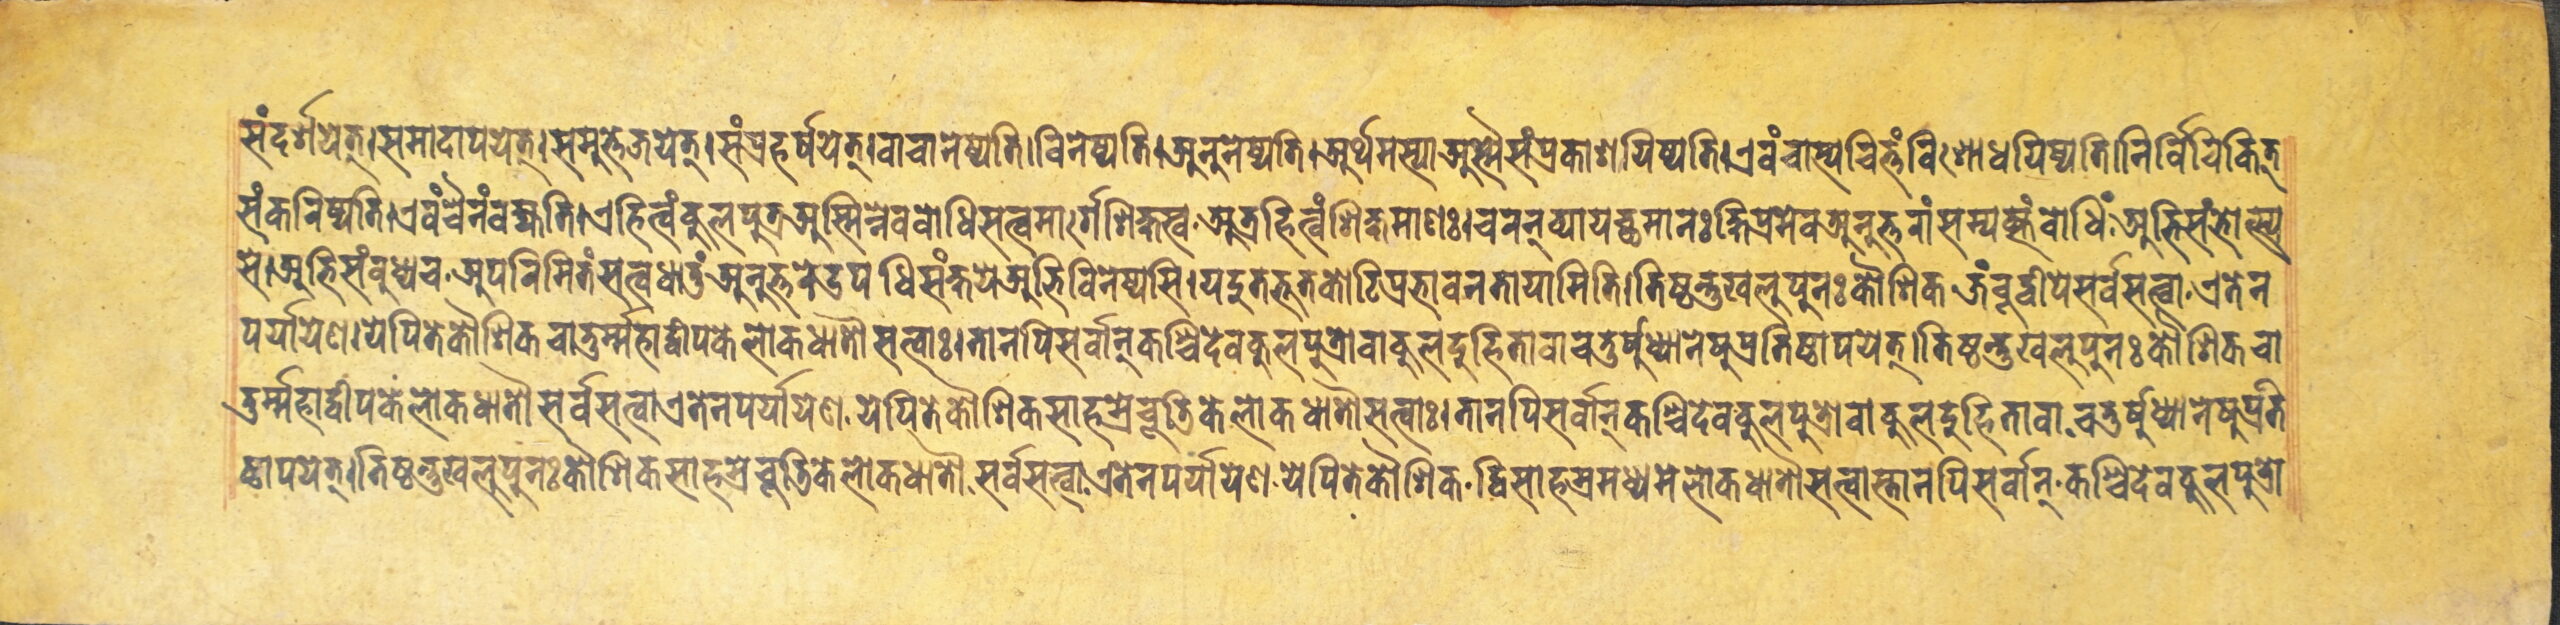 संदर्शयेत्।समादापयेत्।समुत्तेजयेत्।संप्रहर्षयेत्।वाचानेष्यति।विनेष्यति।अनुनेष्यति।अर्थमस्याअस्मैसंप्रकाशयिष्यति।एवंचास्यचित्तंविशोधयिष्यति।निर्विचिकित्
संकरिष्यति।एवंचैनंवक्ष्यति।एहित्वंकुलपुत्रअस्मिन्नेवबोधिसत्वमार्गेशिक्षस्व.अत्रहित्वंशिक्षमाणः।चरन्व्यायच्छमानःक्षिप्रमेवअनुत्तरांसम्यक्संबोधिं.अभिसंभोत्स्य
से।अभिसंबुध्यच.अपरिमितंसत्वधातुंअनुत्तरेउपधिसंक्षयेअभिविनेष्यसि।यदुतभूतकोटिप्रभावनतायामिति।तिष्ठन्तुखलुपुनःकौशिक.जंबूद्वीपेसर्वसत्वा.एतेन
पर्यायेण।येपितेकौशिकचातुर्म्महाद्वीपकेलोकधातौसत्वाः।तानपिसर्वान्कश्चिदेवकुलपुत्रोवाकुलदुहितावाचतुर्षुध्यानेषुप्रतिष्ठापयेत्।तिष्ठन्तुखलुपुनःकौशिकचा
तुर्म्महाद्वीपकेलोकधातौसर्वसत्वाएतेनपर्यायेण.येपितेकौशिकसाहस्रेचूडिकेलोकधातौसत्वाः।तानपिसर्वान्कश्चिदेवकुलपुत्रोवाकुलदुहितावा.चतुर्षुध्यानेषुप्रति
ष्ठापयेत्।तिष्ठन्तुखलुपुनःकौशिकसाहस्रेचूडिकेलोकधातौ.सर्वसत्वा.एतेनपर्यायेण.येपितेकौशिक.द्विसाहस्रमध्यमेलोकधातौसत्वास्तानपिसर्वान्.कश्चिदेवकुलपुत्रो